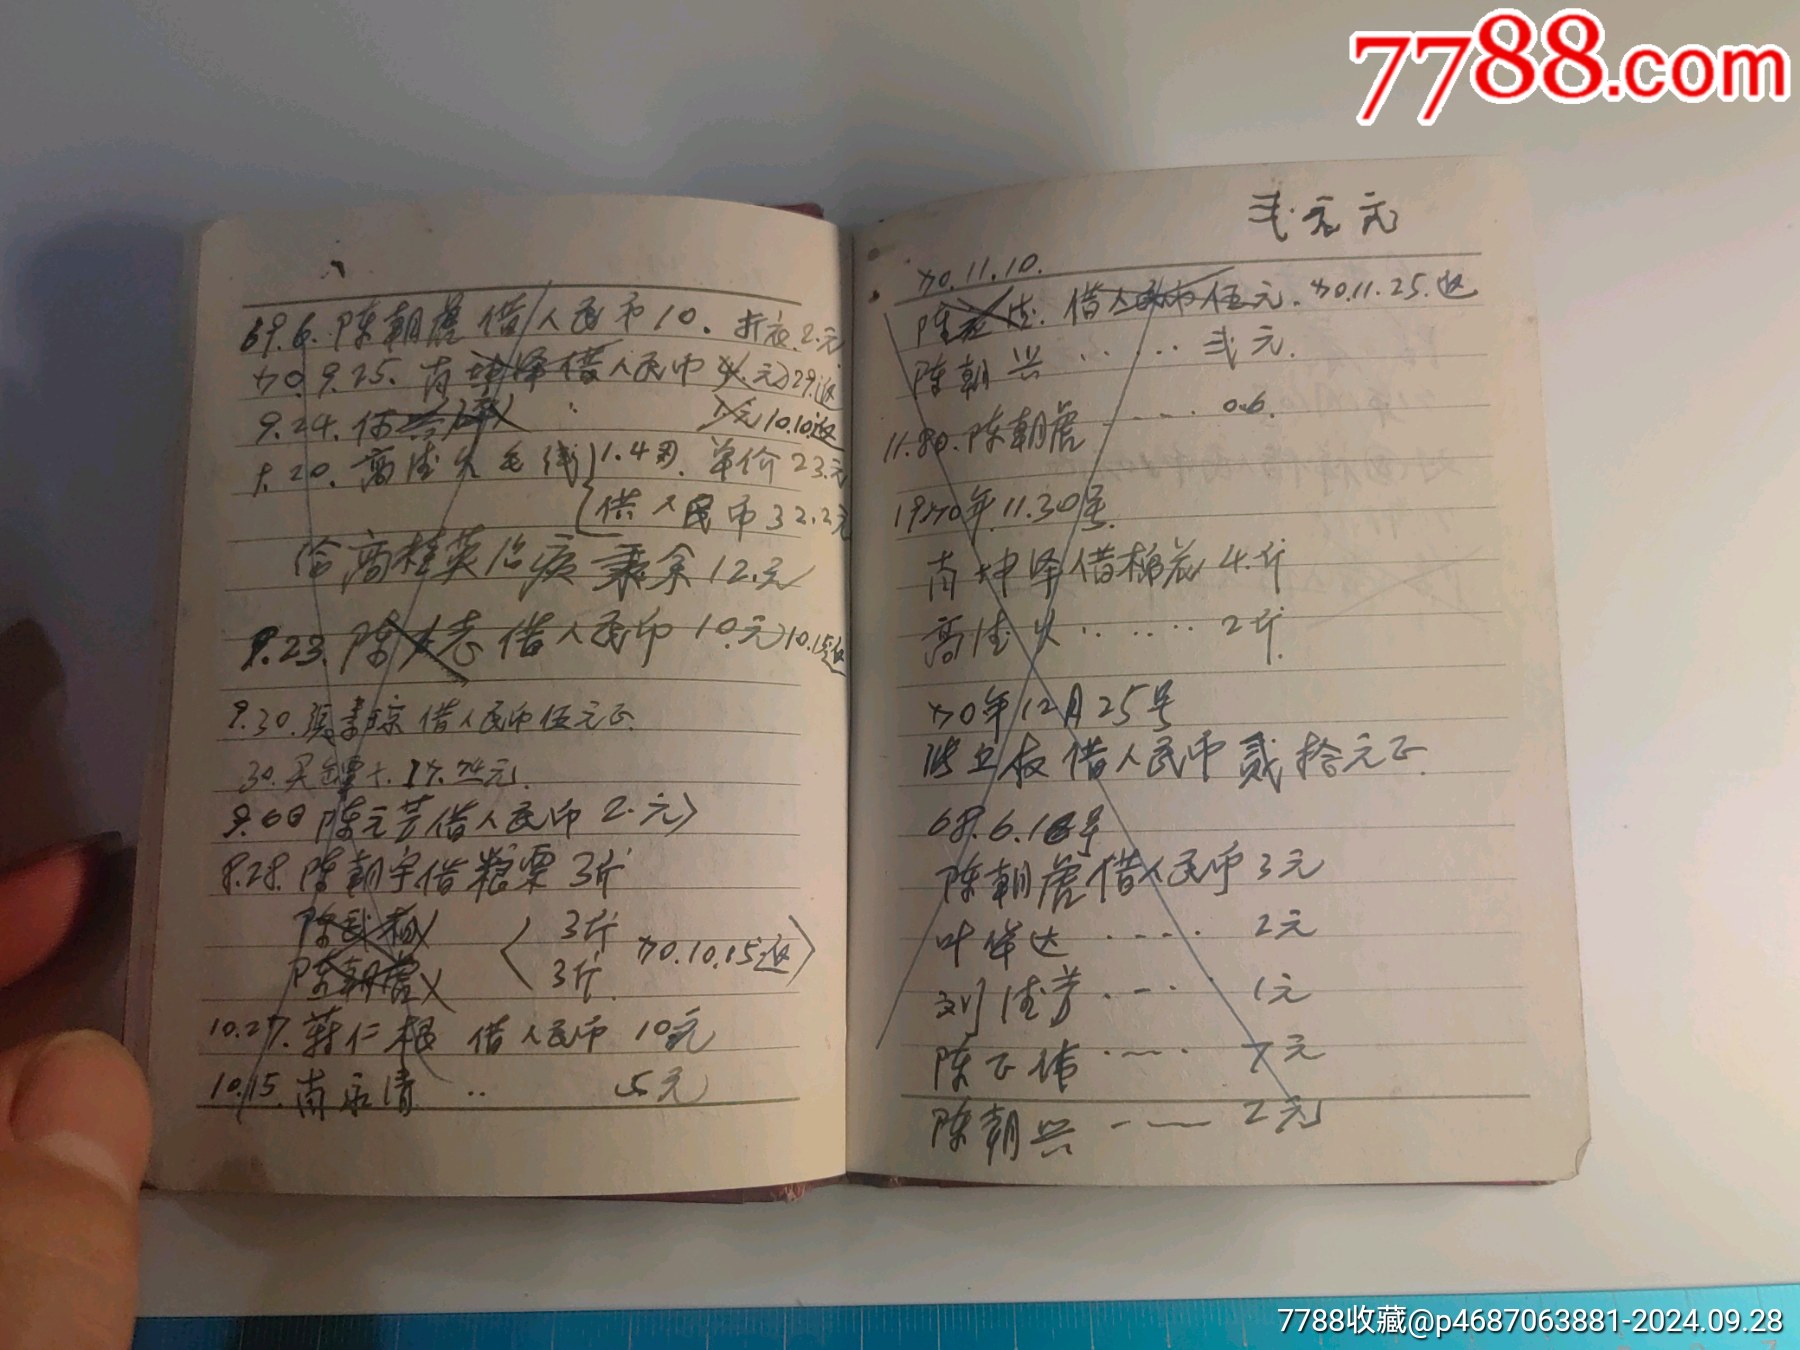 7788.com
69.6.陈朝虎借人民币10.折衣2.元
70.9.25.南坤泽借人民币 元29.返
9.24. 元10.10返
20.高德火毛线1.4 单价23.元
借人民币32.2元
给高桂英治病 余12.元
9.23.陈 志借人民币10.元10.15返
9.30. 借人民币伍元正
30.买 元
陈元芸借人民币2.元
8.28.陈朝宇借粮票3斤
陈武 3斤
陈朝虎 3斤 70.10.15返
10.27. 仁根 借人民币 10元
10.15.南永清 .. 5元
弍 元
70.11.10.
陈 借人民币伍元.70.11.25.返
陈朝兴 ..... 弍元.
陈朝虎 ---- 0.6.
1970年.11.30号
南坤泽借棉花4.斤
高德火 ...... 2斤.
70年12月25号
借人民币贰拾元正.
68.6. 号
陈朝虎借人民币3元
叶 达 .... 2元
刘德芳 .-.. 1元
陈正伟 .--. 7元
陈朝兴 --- 2元
7788收藏@p4687063881-2024.09.28